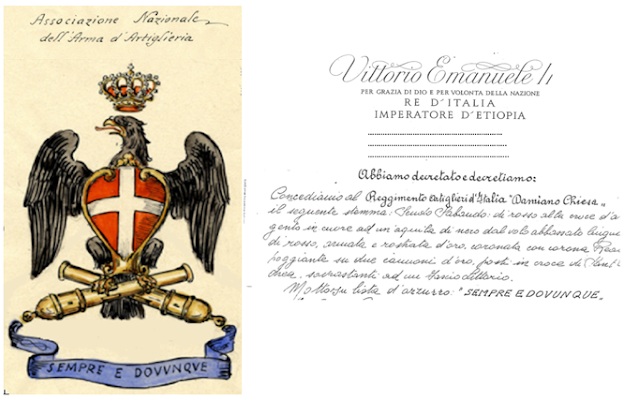 Associazione Nazionale
dell'Arma d'Artiglieria
SEMPRE E DOVUNQUE
Vittorio Emanuele
PER GRAZIA DI DIO E PER VOLONTA DELLA NAZIONE
RE D'ITALIA
IMPERATORE D'ETIOPIA
Abbiamo decretato e decretiamo:
Concediamo al Reggimento Artiglieri d'Italia "Damiano Chiesa"
il seguente stemma: Scudo Sabaudo: di rosso alla croce d'a
gento in cuore ad un'aquila di nero dal volo abbassato
di rosso, armata e rostrata d'oro, coronata con corona
poggiante su due cannoni d'oro, posti in croce di
drea, sovrastanti ad un
Motto su lista d'azzurro: "SEMPRE E DOVUNQUE